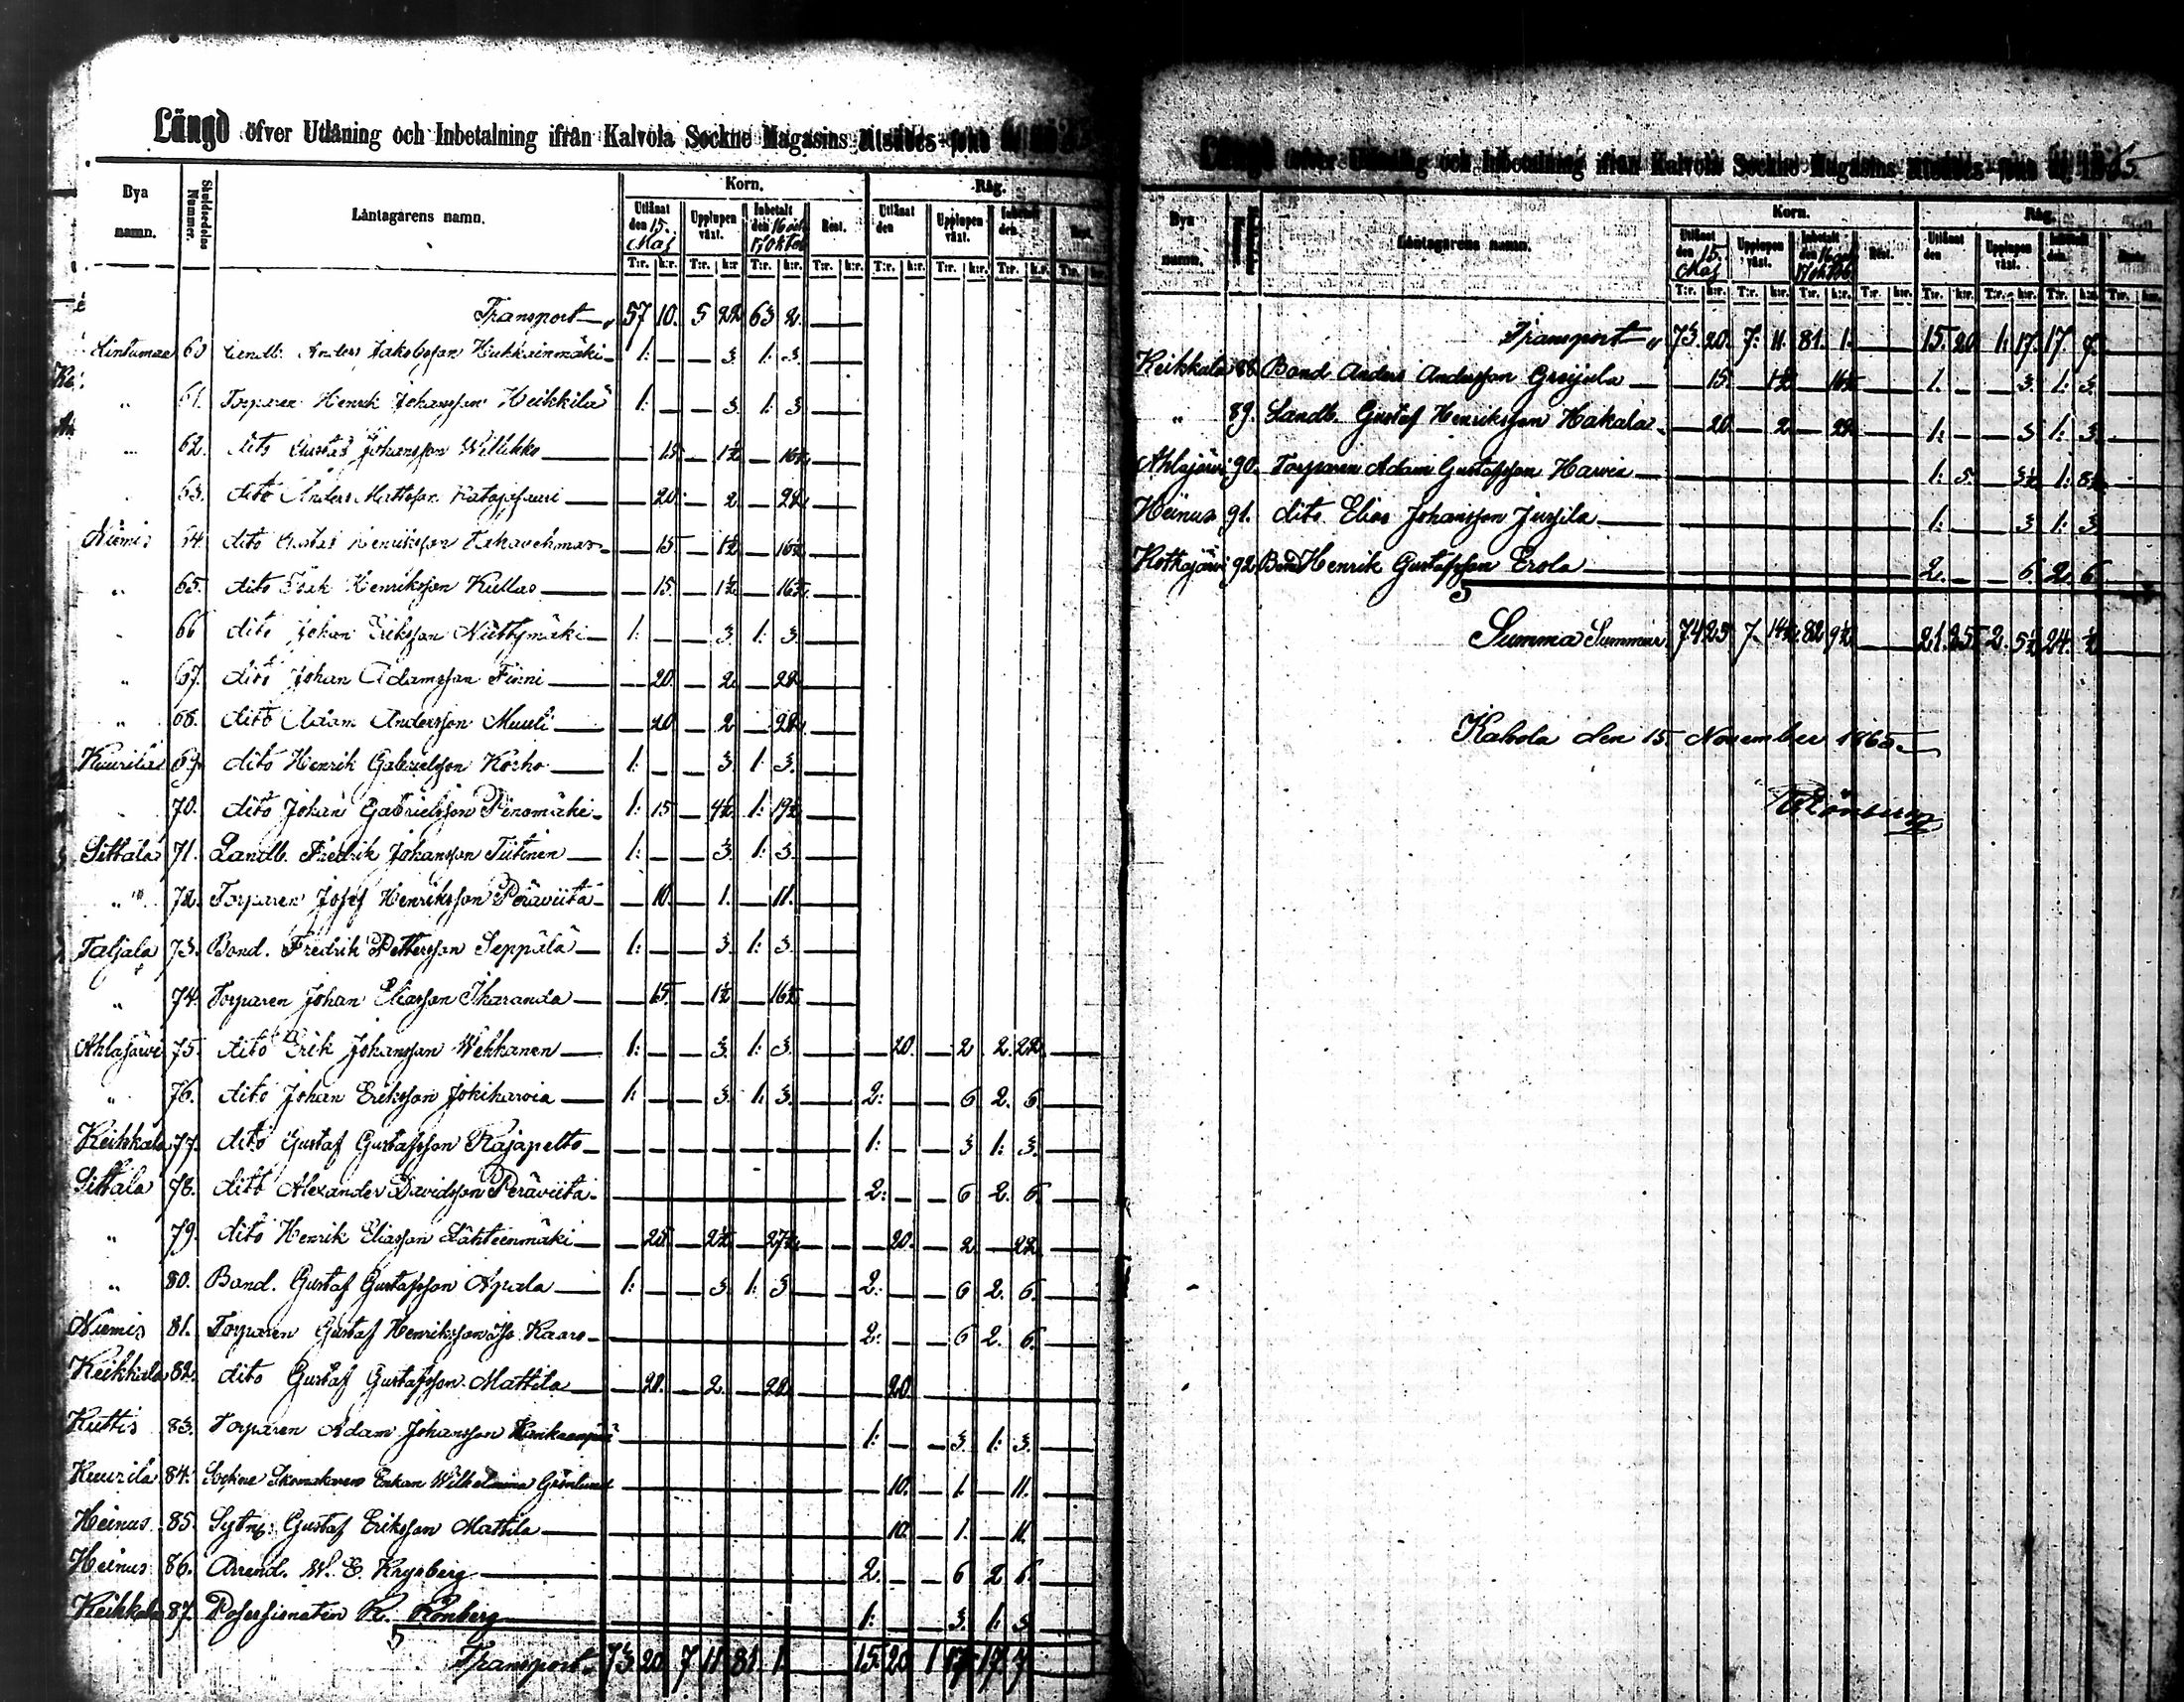 Längd öfver Utlåning och Inbetalning ifrån Kalvola Sockne Magasins Utsädes-fond år 18
Bya namn. Skuldsedelns Nummer. Låntagarens namn. Korn. Råg.
Utlånat den 15. Maj Upplupen växt. Inbetalt den 16 och 17 Oktob Rest. Utlånat den Upplupen växt. Inbetalt den. Rest.
T:r. k:r. T:r. k:r T:r. k:r. T:r. k:r. T:r. k:r. T:r. k:r. T:r. k:r. T:r. k:r.
Transport 57 10. 5 22 63 2. —
Hintumaa 60 Landb. Anders Jakobsson Kukkainmäki 1: — — 3. 1: 3. —
„ 61. Torparen Henrik Johansson Heikkilä 1: — — 3. 1: 3. —
„ 62. dito Gustaf Johansson Willukko — 15. — 1½ — 16½ —
„ 63. dito Anders Mattsson Katajasuuri — 20. — 2. — 22. —
Niemis 64. dito Gustaf Henriksson — 15. — 1½ — 16½ —
„ 65. dito Erik Henriksson Kullas — 15. — 1½ — 16½ —
„ 66 dito Johan Eriksson Niittymäki 1: — — 3. 1: 3. —
„ 67. dito Johan Adamsson Finni — 20. — 2. — 22. —
„ 68. dito Adam Andersson Muuli — 20. — 2. — 22. —
Kuurila 69. dito Henrik Gabrielsson Korho 1: — — 3. 1: 3. —
„ 70. dito Johan Gabrielsson Pinomäki 1: 15 — 4½ 1: 19½ —
Sittala 71. Landb. Fredrik Johansson Tiitinen 1: — — 3. 1: 3. —
„ 72. Torparen Josef Henriksson Peräviita — 10. — 1. — 11. —
Taljala 73. Bond. Fredrik Pettersson Seppälä 1: — — 3. 1: 3. —
„ 74. Torparen Johan Eliasson Iharanda — 15. — 1½ — 16½ —
Ahlajärvi 75. dito Erik Johansson Wehkanen 1: — — 3. 1: 3. — — 20. — 2 2. 22. —
„ 76. dito Johan Eriksson Jokiharvia 1: — — 3. 1: 3. — 2: — — 6 2. 6. —
Keikkala 77. dito Gustaf Gustafsson Rajapelto — — — — — — — 1: — — 3 1: 3. —
Sittala 78. dito Alexander Davidsson Peräviita — 2: — — 6 2. 6. —
„ 79. dito Henrik Eliasson Lähteenmäki — 25. — 2½ — 27½ — — 20. — 2. — 22. —
„ 80. Bond. Gustaf Gustafsson Apala 1: — — 3. 1: 3 — 2: — — 6 2. 6. —
Niemis 81. Torparen Gustaf Henriksson Iso Kaaro — 2: — — 6 2. 6. —
Keikkala 82. dito Gustaf Gustafsson Mattila — 20. — 2. — 22. — — 20. —
Kuttis 83. Torparen Adam Johansson — 1: — — 3. 1: 3. —
Kuurila 84. Sockne Skomakaren Enkan Wilhelmina Grönlund — 10. — 1. — 11. —
Heinus 85. Sytn. Gustaf Eriksson Mattila — 10. — 1. — 11. —
Heinus 86. Arrend. W. E. Krysberg — 2. — — 6 2 6. —
Keikkala 87. Possessionaten K. Rönberg — 1: — — 3. 1: 3 —
Transport 73 20. 7 11 81. 1. — 15. 20. 1 17. 17. 7. —
Längd öfver Utlåning och Inbetalning ifrån Kalvola Sockne Magasins Utsädes-fond år 1865
Bya namn. Låntagarens namn. Korn. Råg.
Utlånat den 15. Maj Upplupen växt. Inbetalt den 16 och 17 Oktob Rest. Utlånat den Upplupen växt. Inbetalt den.
T:r. k:r. T:r. k:r. T:r. k:r. T:r. k:r. T:r. k:r. T:r. k:r. T:r. k:r. T:r. k:r.
Transport 73. 20. 7. 11. 81. 1. — 15. 20 1. 17. 17. 7. —
Keikkala 88. Bond Anders Andersson Greijula — 15. — 1½ — 16½ — 1. — — 3 1: 3. —
„ 89. Landb. Gustaf Henriksson Hakala — 20. — 2. — 22. — 1: — — 3 1: 3. —
Ahlajärvi 90. Torparen Adam Gustafsson Harvia — 1: 5. — 3½ 1: 8½ —
Heinus 91. dito Elias Johansson Jussila — 1: — — 3 1: 3 —
Kotkajärvi 92. Bond Henrik Gustafsson Erola — 2. — — 6. 2. 6. —
Summa Summar. 74 25 7. 14½ 82 9½ — 21. 25. 2. 5½ 24. ½ —
Kalvola den 15. November 1865.
KRönberg